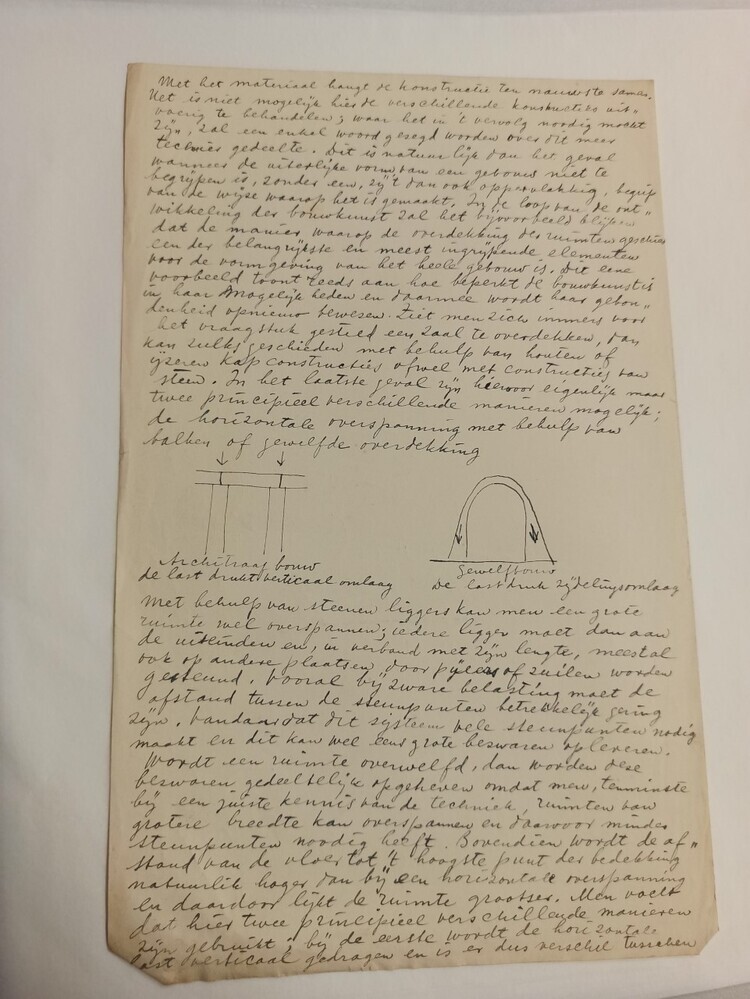 Met het materiaal hangt de konstructie ten nauwste samen.
Het is niet mogelijk hier de verschillende konstructies uit„
voerig te behandelen; waar het in 't vervolg nodig mocht
zijn, zal een enkel woord gesegd worden over dit meer
technies gedeelte. Dit is natuurlijk dan het geval
wanneer de uiterlijke vorm van een gebouw niet te
begrijpen is, zonder een, zij 't dan ook oppervlakkig, begrip
van de wijze waarop het is gemaakt. In de loop van de ont„
wikkeling der bouwkunst zal het bijvoorbeeld blijken
dat de manier waarop de overdekking der ruimten geschied
een der belangrijkste en meest ingrijpende elementen
voor de vormgeving van het heele gebouw is. Dit eene
voorbeeld toont reeds aan hoe beperkt de bouwkunst is
in haar mogelijkheden en daarmee wordt haar gebon„
denheid opnieuw bewesen. Ziet men zich immers voor
het vraagstuk gesteld een zaal te overdekken, dan
kan zulks geschieden met behulp van houten of
ijzeren kapconstructies ofwel met constructies van
steen. In het laatste geval zijn hiervoor eigenlijk maar
twee principieel verschillende manieren mogelijk;
de horizontale overspanning met behulp van
balken of gewelfde overdekking
Architraafbouw
de last drukt verticaal omlaag
Gewelfbouw
De last drukt zijdelings omlaag
Met behulp van steenen liggers kan men een grote
ruimte wel overspannen; iedere ligger moet dan aan
de uiteinden en, in verband met zijn lengte, meestal
ook op andere plaatsen door pijlers of zuilen worden
gesteund. Vooral bij zware belasting moet de
afstand tussen de steunpunten betrekkelijk gering
zijn. Vandaar dat dit systeem vele steunpunten nodig
maakt en dit kan wel eens grote beswaren opleveren.
Wordt een ruimte overwelfd, dan worden dese
beswaren gedeeltelijk opgeheven omdat men, tenminste
bij een juiste kennis van de techniek, ruimten van
grotere breedte kan overspannen en daarvoor minder
steunpunten noodig heeft. Bovendien wordt de af„
stand van de vloer tot 't hoogste punt der bedekking
natuurlik hoger dan bij een horizontale overspanning
en daardoor lijkt de ruimte grootser. Men voelt
dat hier twee principieel verschillende manieren
zijn gebruikt; bij de eerste wordt de horizontale
last verticaal gedragen en is er dus verschil tusschen